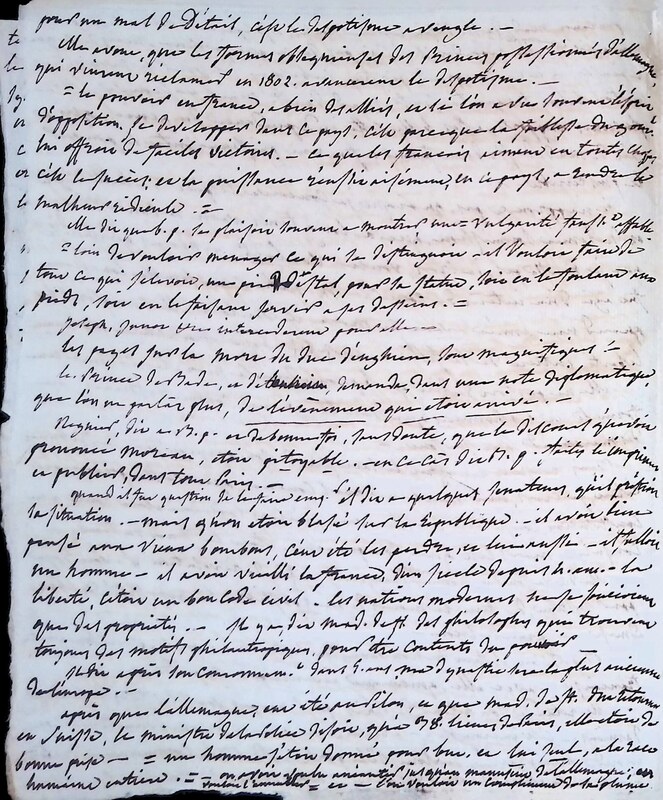 pour un mal de détail, c'est le despotisme aveugle. —
elle avoue, que les formes obséquieuses des Princes possessionnés d'allemagne,
qui vinrent réclamer en 1802. avancerent le despotisme. —
= le pouvoir en france, a bien des alliés, et si l'on a vu souvent l'esprit
d'opposition, se developper dans ce pays, c'est parce que la faiblesse du gouv.t
lui offroit de faciles victoires. — ce que les francois aiment en toutes choses
c'est le succès; et la puissance réussit aisément, en ce pays, a rendre le
malheur ridicule. =
elle dit que b. p. se plaisoit souvent a montrer une = vulgarité
= loin de vouloir menager ce qui se distinguoit — il vouloit faire de
tout ce qui s'élevoit, un piédestal, pour sa statue, soit en le foulant aux
pieds, soit en le faisant servir a ses desseins. =
Joseph, Junot pour elle —
les pages sur la mort du duc d'enghien, sont magnifiques! —
le Prince de Bade, demanda, dans une note diplomatique,
que l'on ne parlat plus, de l'évènement qui etoit arrivé. —
Regnier, dit a b. p. et de bonne foi, sans doute, que le discours qu'avoit
prononcé moreau, etoit pitoyable. — en ce cas dit b. p. faites le imprimer
et publier, dans tout Paris. —
quand il fut question de il dit a quelques senateurs, qu'il
la situation. — mais qu'on etoit blasé sur la République — il avoit bien
pensé aux vieux bourbons, c'eut été les perdre, et lui aussi — il falloit
un homme — il avoit vieilli la france, d'un siecle depuis 4. ans. — la
liberté, c'etoit un bon code civil. les nations modernes ne se soucioient
que des proprietés. — Il y a, dit mad. de St. des philosophes qui trouvent
toujours des motifs philantropiques, pour être contents du pouvoir
il dit après son couronnem.t dans 5. ans, ma dynastie sera la plus ancienne
de l'europe. —
après que l'allemagne, eut été au pilon, et que mad. de St. fut
en Suisse, le ministre de la police disoit, qu'a 48. lieues de Paris, elle etoit de
bonne prise — = un homme s'étoit donné pour but, et lui seul, a la race
humaine entiere. = — on avoit voulu aneantir jusqu'au manuscrit de l'allemagne; et